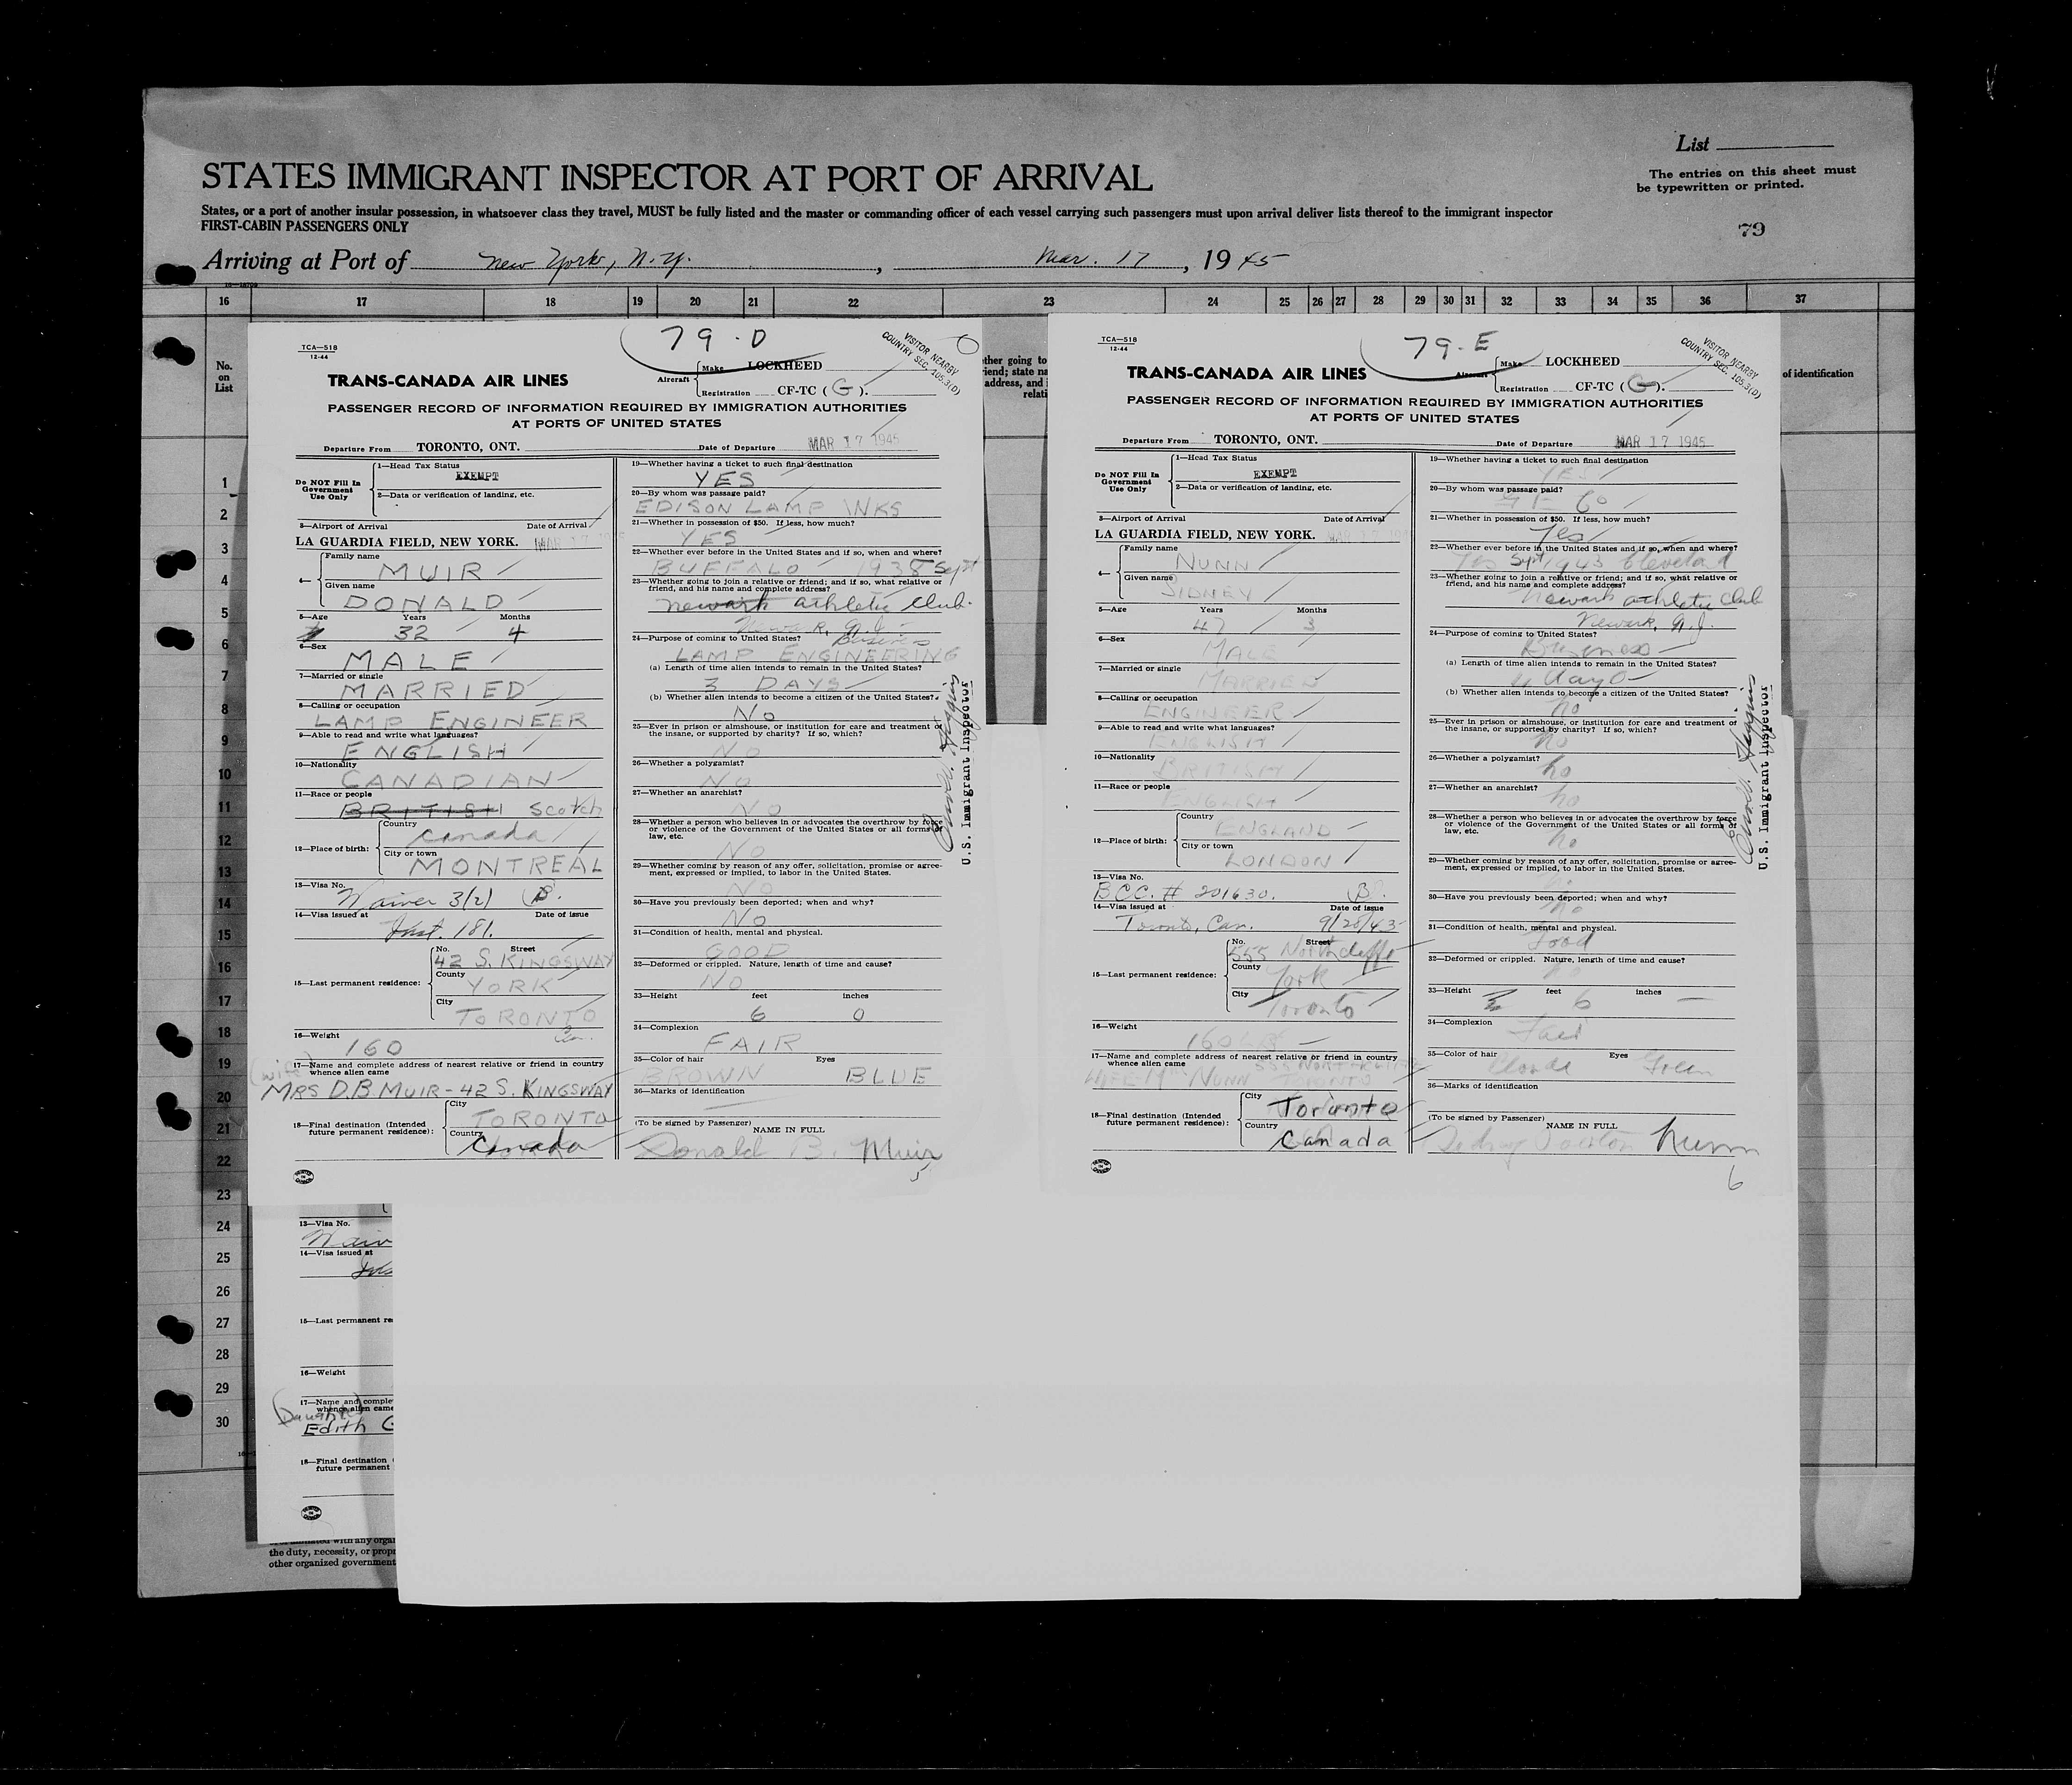 List
STATES IMMIGRANT INSPECTOR AT PORT OF ARRIVAL
The entries on this sheet must
be typewritten or printed.
States, or a port of another insular possession, in whatsoever class they travel, MUST be fully listed and the master or commanding officer of each vessel carrying such passengers must upon arrival deliver lists thereof to the immigrant inspector
FIRST-CABIN PASSENGERS ONLY
79
Arriving at Port of New York, N.Y., Mar. 17, 1945
16 17 18 19 20 21 22 23 24 25 26 27 28 29 30 31 32 33 34 35 36 37
No.
on
List
1
2
3
4
5
6
7
8
9
10
11
12
13
14
15
16
17
18
19
20
21
22
23
24
25
26
27
28
29
30
79-D
TCA—518
12-44
VISITOR NEARBY
COUNTRY SEC. 105.3(D)
TRANS-CANADA AIR LINES
Aircraft Make LOCKHEED
Registration CF-TC (G).
PASSENGER RECORD OF INFORMATION REQUIRED BY IMMIGRATION AUTHORITIES
AT PORTS OF UNITED STATES
Departure From TORONTO, ONT. Date of Departure MAR 17 1945
Do NOT Fill In
Government
Use Only
1—Head Tax Status
EXEMPT
2—Data or verification of landing, etc.
3—Airport of Arrival Date of Arrival
LA GUARDIA FIELD, NEW YORK. MAR 17
4— Family name
MUIR
Given name
DONALD
5—Age Years Months
32 4
6—Sex
MALE
7—Married or single
MARRIED
8—Calling or occupation
LAMP ENGINEER
9—Able to read and write what languages?
ENGLISH
10—Nationality
CANADIAN
11—Race or people
BRITISH Scotch
12—Place of birth: Country
Canada
City or town
MONTREAL
13—Visa No.
Waiver 3(2) B.
14—Visa issued at Date of issue
Inst. 181.
15—Last permanent residence: No. Street
42 S. KINGSWAY
County
YORK
City
TORONTO
Can.
16—Weight
160
(wife)
17—Name and complete address of nearest relative or friend in country
whence alien came
MRS D.B. MUIR - 42 S. KINGSWAY
18—Final destination (Intended
future permanent residence): City
TORONTO
Country
Canada
19—Whether having a ticket to such final destination
YES
20—By whom was passage paid?
EDISON LAMP WKS
21—Whether in possession of $50. If less, how much?
YES
22—Whether ever before in the United States and if so, when and where?
BUFFALO 1938 Sept
23—Whether going to join a relative or friend; and if so, what relative or
friend, and his name and complete address?
Newark athletic Club.
Newark, N.J.
24—Purpose of coming to United States? Business
LAMP ENGINEERING
(a) Length of time alien intends to remain in the United States?
3 DAYS
(b) Whether alien intends to become a citizen of the United States?
No
25—Ever in prison or almshouse, or institution for care and treatment of
the insane, or supported by charity? If so, which?
NO
26—Whether a polygamist?
NO
27—Whether an anarchist?
NO
28—Whether a person who believes in or advocates the overthrow by force
or violence of the Government of the United States or all forms of
law, etc.
NO
29—Whether coming by reason of any offer, solicitation, promise or agree-
ment, expressed or implied, to labor in the United States.
NO
30—Have you previously been deported; when and why?
NO
31—Condition of health, mental and physical.
GOOD
32—Deformed or crippled. Nature, length of time and cause?
NO
33—Height feet inches
6 0
34—Complexion
FAIR
35—Color of hair Eyes
BROWN BLUE
36—Marks of identification
(To be signed by Passenger)
NAME IN FULL
Donald B. Muir
5
U.S. Immigrant Inspector
79-E
TCA—518
12-44
VISITOR NEARBY
COUNTRY SEC. 105.3(D)
TRANS-CANADA AIR LINES
Aircraft Make LOCKHEED
Registration CF-TC (G).
PASSENGER RECORD OF INFORMATION REQUIRED BY IMMIGRATION AUTHORITIES
AT PORTS OF UNITED STATES
Departure From TORONTO, ONT. Date of Departure MAR 17 1945
Do NOT Fill In
Government
Use Only
1—Head Tax Status
EXEMPT
2—Data or verification of landing, etc.
3—Airport of Arrival Date of Arrival
LA GUARDIA FIELD, NEW YORK. MAR 17
4— Family name
NUNN
Given name
SIDNEY
5—Age Years Months
47 3
6—Sex
MALE
7—Married or single
MARRIED
8—Calling or occupation
ENGINEER
9—Able to read and write what languages?
ENGLISH
10—Nationality
BRITISH
11—Race or people
ENGLISH
12—Place of birth: Country
ENGLAND
City or town
LONDON
13—Visa No.
BCC. # 201630. B.
14—Visa issued at Date of issue
Toronto, Can. 9/28/43
15—Last permanent residence: No. Street
555 Northcliffe
County
York
City
Toronto
16—Weight
160
17—Name and complete address of nearest relative or friend in country
whence alien came
NUNN TORONTO
18—Final destination (Intended
future permanent residence): City
Toronto
Country
Canada
19—Whether having a ticket to such final destination
YES
20—By whom was passage paid?
21—Whether in possession of $50. If less, how much?
Yes
22—Whether ever before in the United States and if so, when and where?
Yes Sept 1943 Cleveland
23—Whether going to join a relative or friend; and if so, what relative or
friend, and his name and complete address?
Newark athletic Club
Newark, N.J.
24—Purpose of coming to United States?
Business
(a) Length of time alien intends to remain in the United States?
4 days
(b) Whether alien intends to become a citizen of the United States?
no
25—Ever in prison or almshouse, or institution for care and treatment of
the insane, or supported by charity? If so, which?
no
26—Whether a polygamist?
no
27—Whether an anarchist?
no
28—Whether a person who believes in or advocates the overthrow by force
or violence of the Government of the United States or all forms of
law, etc.
no
29—Whether coming by reason of any offer, solicitation, promise or agree-
ment, expressed or implied, to labor in the United States.
30—Have you previously been deported; when and why?
no
31—Condition of health, mental and physical.
Good
32—Deformed or crippled. Nature, length of time and cause?
33—Height feet inches
6 —
34—Complexion
Fair
35—Color of hair Eyes
Blonde Green
36—Marks of identification
(To be signed by Passenger)
NAME IN FULL
Nunn
6
U.S. Immigrant Inspector
ther going to
iend; state na
address, and i
relati
of identification
13—Visa No.
Waiv
14—Visa issued at
15—Last permanent re
16—Weight
17—Name and comple
whence alien came
Edith
18—Final destination
future permanent
with any orga
the duty, necessity, or prop
other organized government